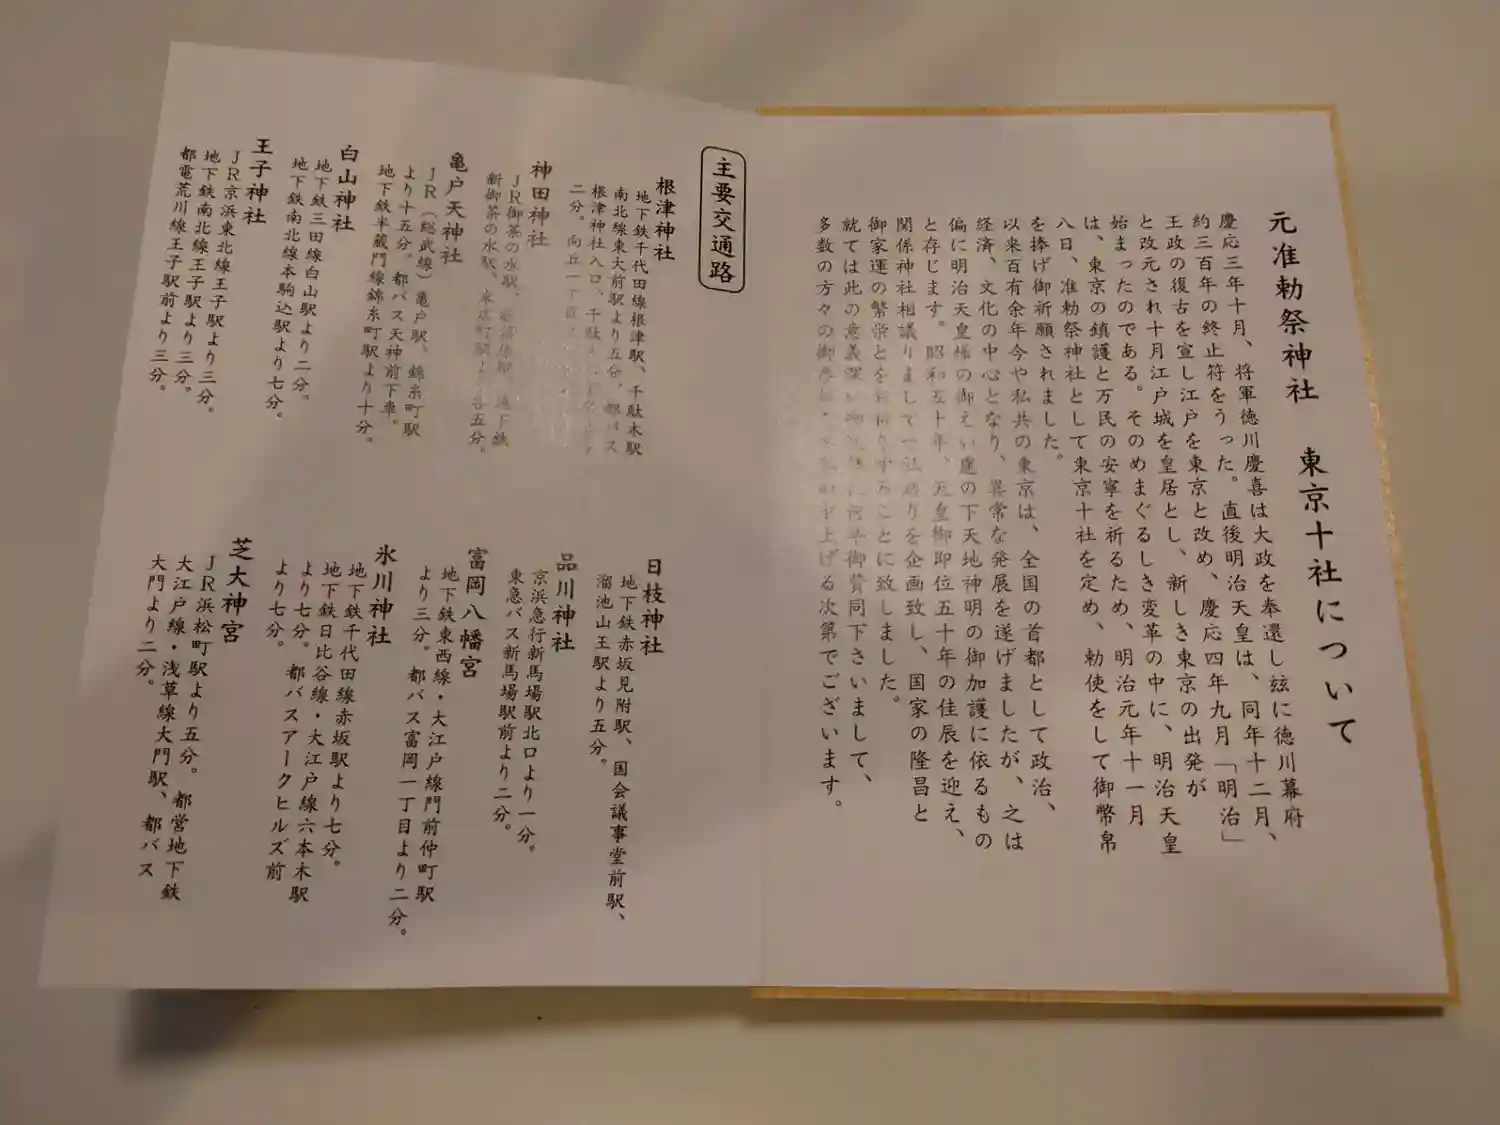 元准勅祭神社　東京十社について
慶応三年十月、将軍徳川慶喜は大政を奉還し玆に徳川幕府
約三百年の終止符をうった。直後明治天皇は、同年十二月、
王政の復古を宣し江戸を東京と改め、慶応四年九月「明治」
と改元され十月江戸城を皇居とし、新しき東京の出発が
始まったのである。そのめまぐるしき変革の中に、明治天皇
は、東京の鎮護と万民の安寧を祈るため、明治元年十一月
八日、准勅祭神社として東京十社を定め、勅使をして御幣帛
を捧げ御祈願されました。
以来百有余年今や私共の東京は、全国の首都として政治、
経済、文化の中心となり、異常な発展を遂げましたが、之は
偏に明治天皇様の御えい慮の下天地神明の御加護に依るもの
と存じます。昭和五十年、天皇御即位五十年の佳辰を迎え、
関係神社相議りまして十社巡りを企画致し、国家の隆昌と
御家運の繁栄とをお祈りすることに致しました。
就ては此の意義深い御賛同下さいまして、
多数の方々の上げる次第でございます。
主要交通路
根津神社
地下鉄千代田線根津駅、千駄木駅
南北線東大前駅より五分。都バス
根津神社入口、千駄木
二分。向丘一丁目
神田神社
ＪＲ御茶の水駅、地下鉄
新御茶の水駅、末広町駅より各五分。
亀戸天神社
ＪＲ（総武線）亀戸駅、錦糸町駅
より十五分。都バス天神前下車。
地下鉄半蔵門線錦糸町駅より十分。
白山神社
地下鉄三田線白山駅より二分。
地下鉄南北線本駒込駅より七分。
王子神社
ＪＲ京浜東北線王子駅より三分。
地下鉄南北線王子駅より三分。
都電荒川線王子駅前より三分。
日枝神社
地下鉄赤坂見附駅、国会議事堂前駅、
溜池山王駅より五分。
品川神社
京浜急行新馬場駅北口より一分。
東急バス新馬場駅前より二分。
富岡八幡宮
地下鉄東西線・大江戸線門前仲町駅
より三分。都バス富岡一丁目より二分。
氷川神社
地下鉄千代田線赤坂駅より七分。
地下鉄日比谷線・大江戸線六本木駅
より七分。都バスアークヒルズ前
より七分。
芝大神宮
ＪＲ浜松町駅より五分。都営地下鉄
大江戸線・浅草線大門駅、都バス
大門より二分。